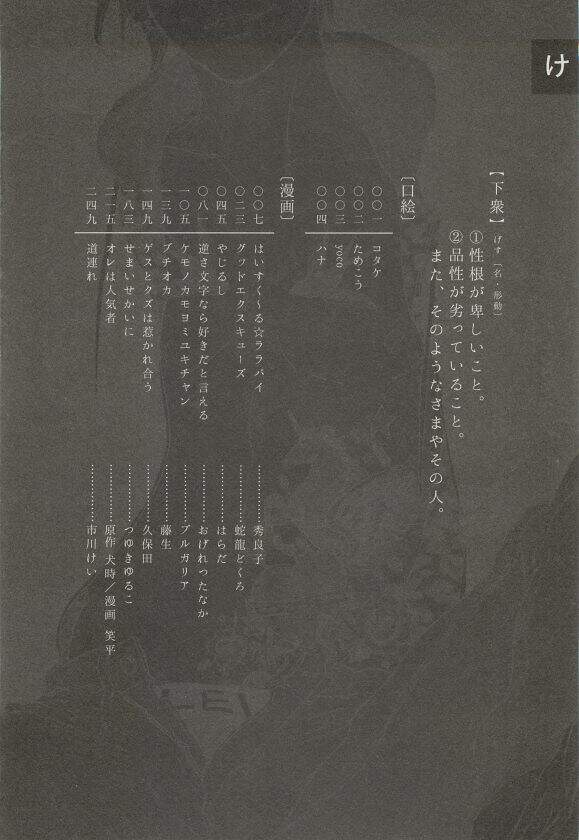 け
【下衆】げす〔名・形動〕
①性根が卑しいこと。
②品性が劣っていること。
また、そのようなさまやその人。
〔口絵〕
〇〇一 コタケ
〇〇二 ためこう
〇〇三 yoco
〇〇四 ハナ
〔漫画〕
〇〇七 はいすく〜る☆ララバイ…………秀良子
〇二三 グッドエクスキューズ…………蛇龍どくろ
〇四五 やじるし…………はらだ
〇八一 逆さ文字なら好きだと言える…………おげれつたなか
一〇五 ケモノカモヨミユキチャン…………ブルガリア
一三九 プチオカ…………藤生
一四九 ゲスとクズは惹かれ合う…………久保田
一八三 せまいせかいに…………つゆきゆるこ
二一五 オレは人気者…………原作 犬時／漫画 笑平
二四九 道連れ…………市川けい